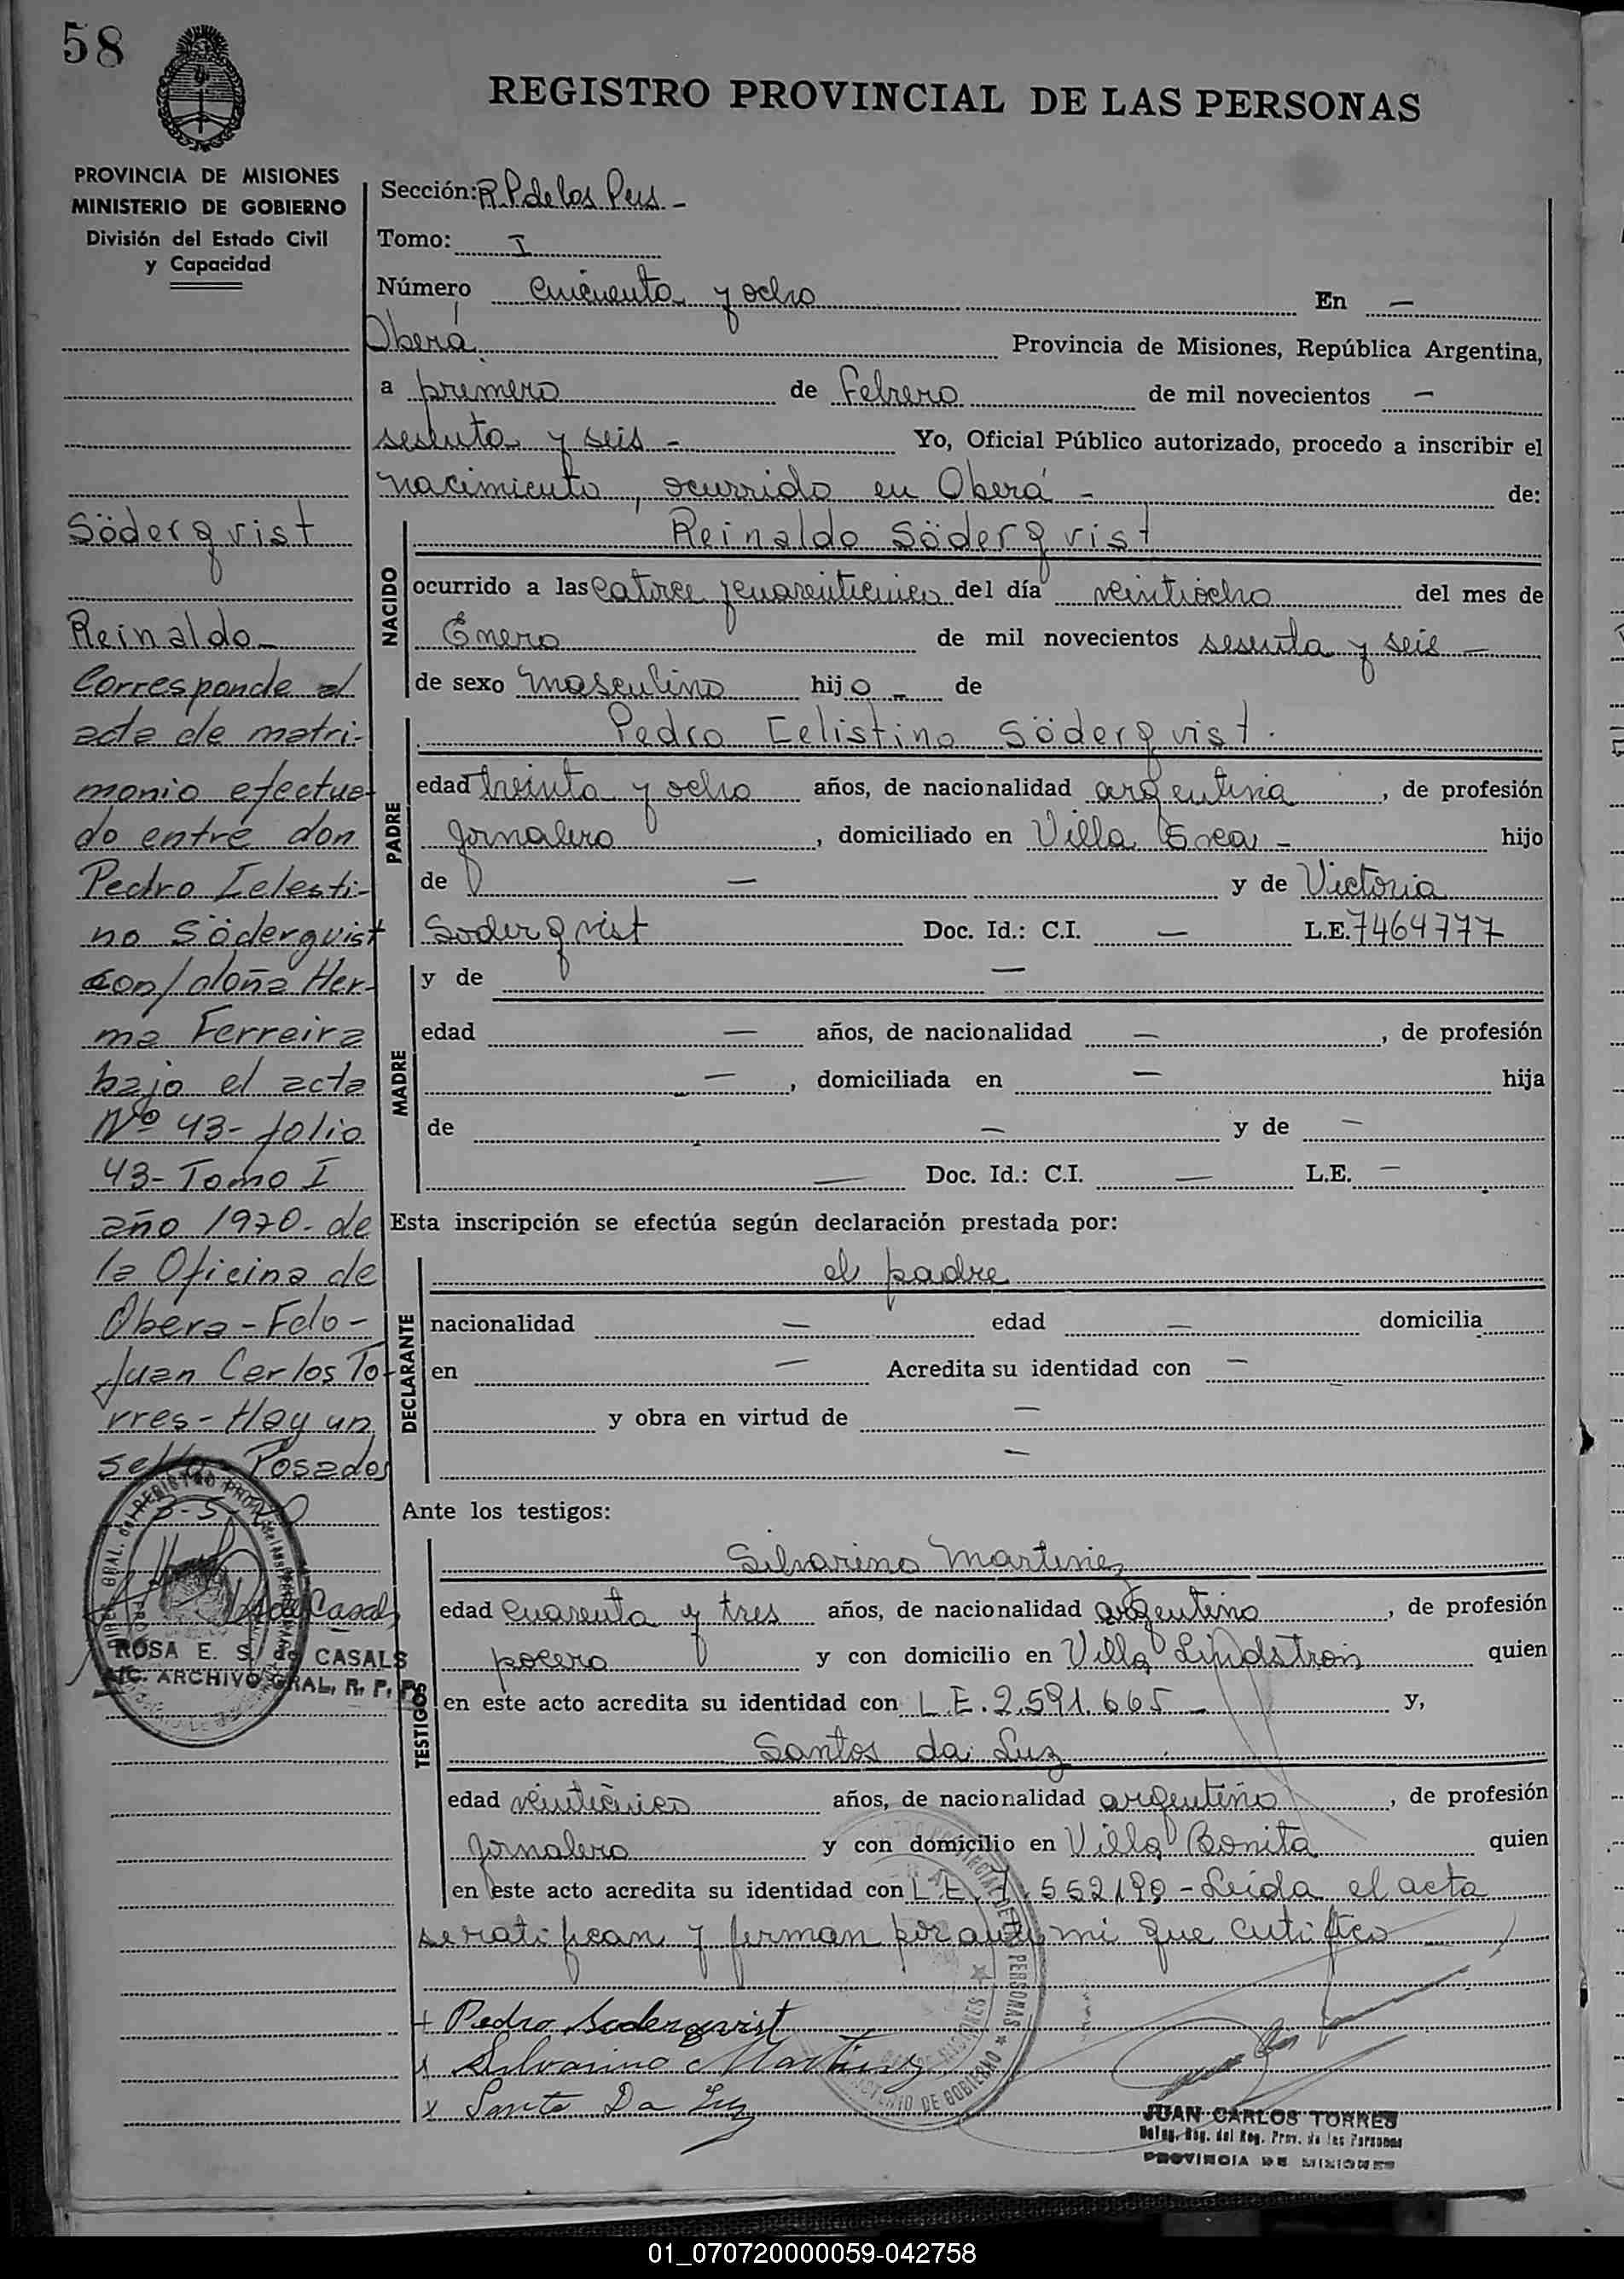 58
REGISTRO PROVINCIAL DE LAS PERSONAS
PROVINCIA DE MISIONES
MINISTERIO DE GOBIERNO
División del Estado Civil
y Capacidad
Sección: R.P de las Pers. -
Tomo: I
Número Cincuenta y ocho En —
Oberá Provincia de Misiones, República Argentina,
a primero de Febrero de mil novecientos —
sesenta y seis - Yo, Oficial Público autorizado, procedo a inscribir el
nacimiento, ocurrido en Oberá - de:
Söderqvist
Reinaldo -
Corresponde al
acta de matri-
monio efectua-
do entre don
Pedro Celesti-
no Söderquist
con/doña Her-
ma Ferreira
bajo el acta
Nº 43- folio
43- Tomo I
año 1970- de
la Oficina de
Obera - Fdo -
Juan Carlos To-
rres - Hay un
sello Posadas
ROSA E. S. de CASALS
ARCHIVO GRAL. R. P. P.
NACIDO
Reinaldo Söderqvist
ocurrido a las catorce y cuarenticinco del día veintiocho del mes de
Enero de mil novecientos sesenta y seis -
de sexo masculino hijo - de
PADRE
Pedro Celistino Söderqvist.
edad treinta y ocho años, de nacionalidad argentina, de profesión
Jornalero, domiciliado en Villa - hijo
de — y de Victoria
Soderqvist Doc. Id.: C.I. — L.E. 7464777
MADRE
y de —
edad — años, de nacionalidad —, de profesión
—, domiciliada en — hija
de — y de —
— Doc. Id.: C.I. — L.E. —
Esta inscripción se efectúa según declaración prestada por:
DECLARANTE
el padre
nacionalidad — edad — domicilia
en — Acredita su identidad con —
y obra en virtud de —
—
Ante los testigos:
TESTIGOS
Silvarino Martinez
edad Cuarenta y tres años, de nacionalidad argentino, de profesión
pocero y con domicilio en Villa Lindstron quien
en este acto acredita su identidad con L.E. 2.591.665 - y,
Santos da Luz
edad veinticinco años, de nacionalidad argentino, de profesión
Jornalero y con domicilio en Villa Bonita quien
en este acto acredita su identidad con L.E. 7.552190 - Leida el acta
se ratifican y firman por ante mi que certifico
+ Pedro Soderqvist
x Silvarino Martinez
x Santo Da Luz
JUAN CARLOS TORRES
Deleg. Reg. del Reg. Prov. de las Personas
PROVINCIA DE MISIONES
01_070720000059-042758